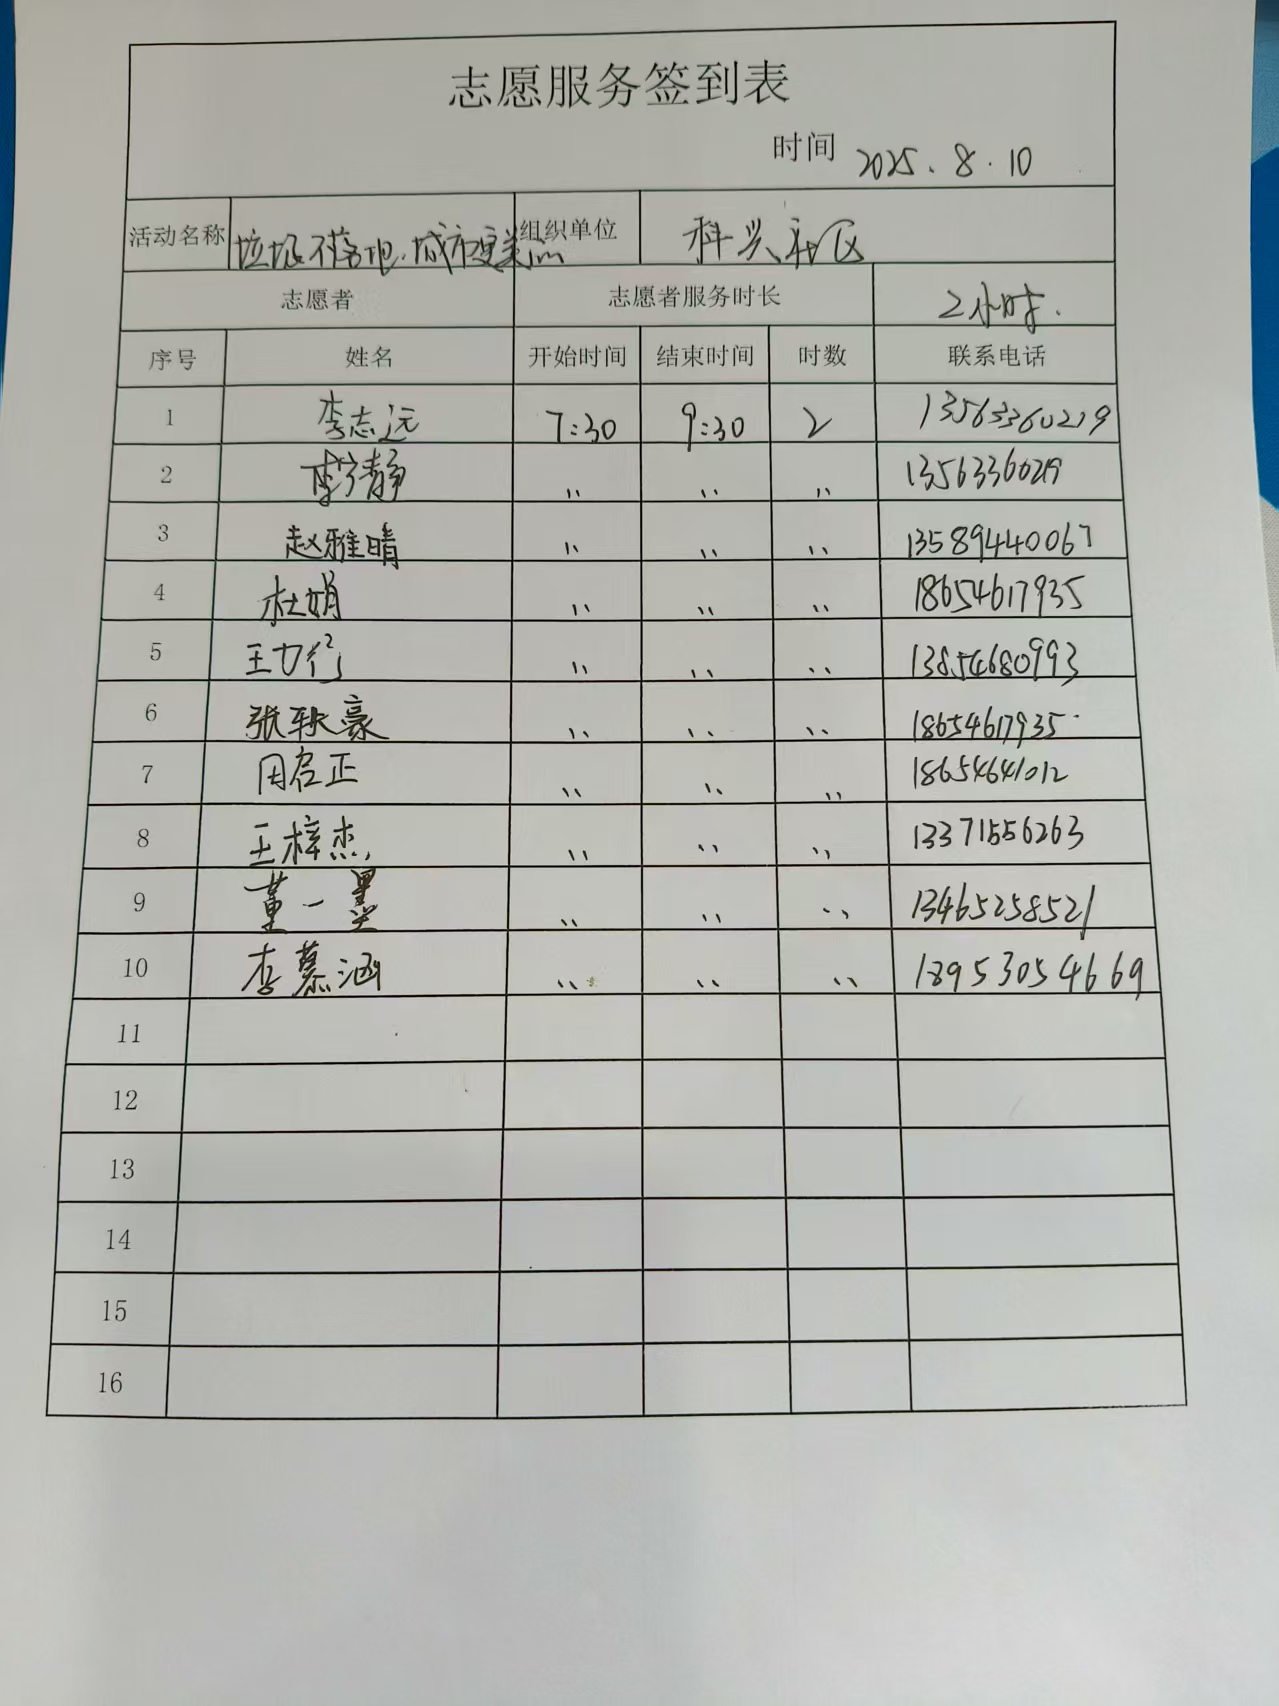 志愿服务签到表
时间 2025.8.10
活动名称 垃圾不落地.城市更美丽 组织单位 科兴社区
志愿者 志愿者服务时长 2小时.
序号 姓名 开始时间 结束时间 时数 联系电话
1 李志远 7:30 9:30 2 13563360219
2 〃 〃 〃 13563360219
3 赵雅晴 〃 〃 〃 13589440067
4 杜娟 〃 〃 〃 18654617935
5 王力行 〃 〃 〃 13854680993
6 张轶豪 〃 〃 〃 18654617935
7 周启正 〃 〃 〃 18654641012
8 王梓杰 〃 〃 〃 13371556263
9 董一 〃 〃 〃 13465258521
10 李慕涵 〃 〃 〃 18953054669
11
12
13
14
15
16